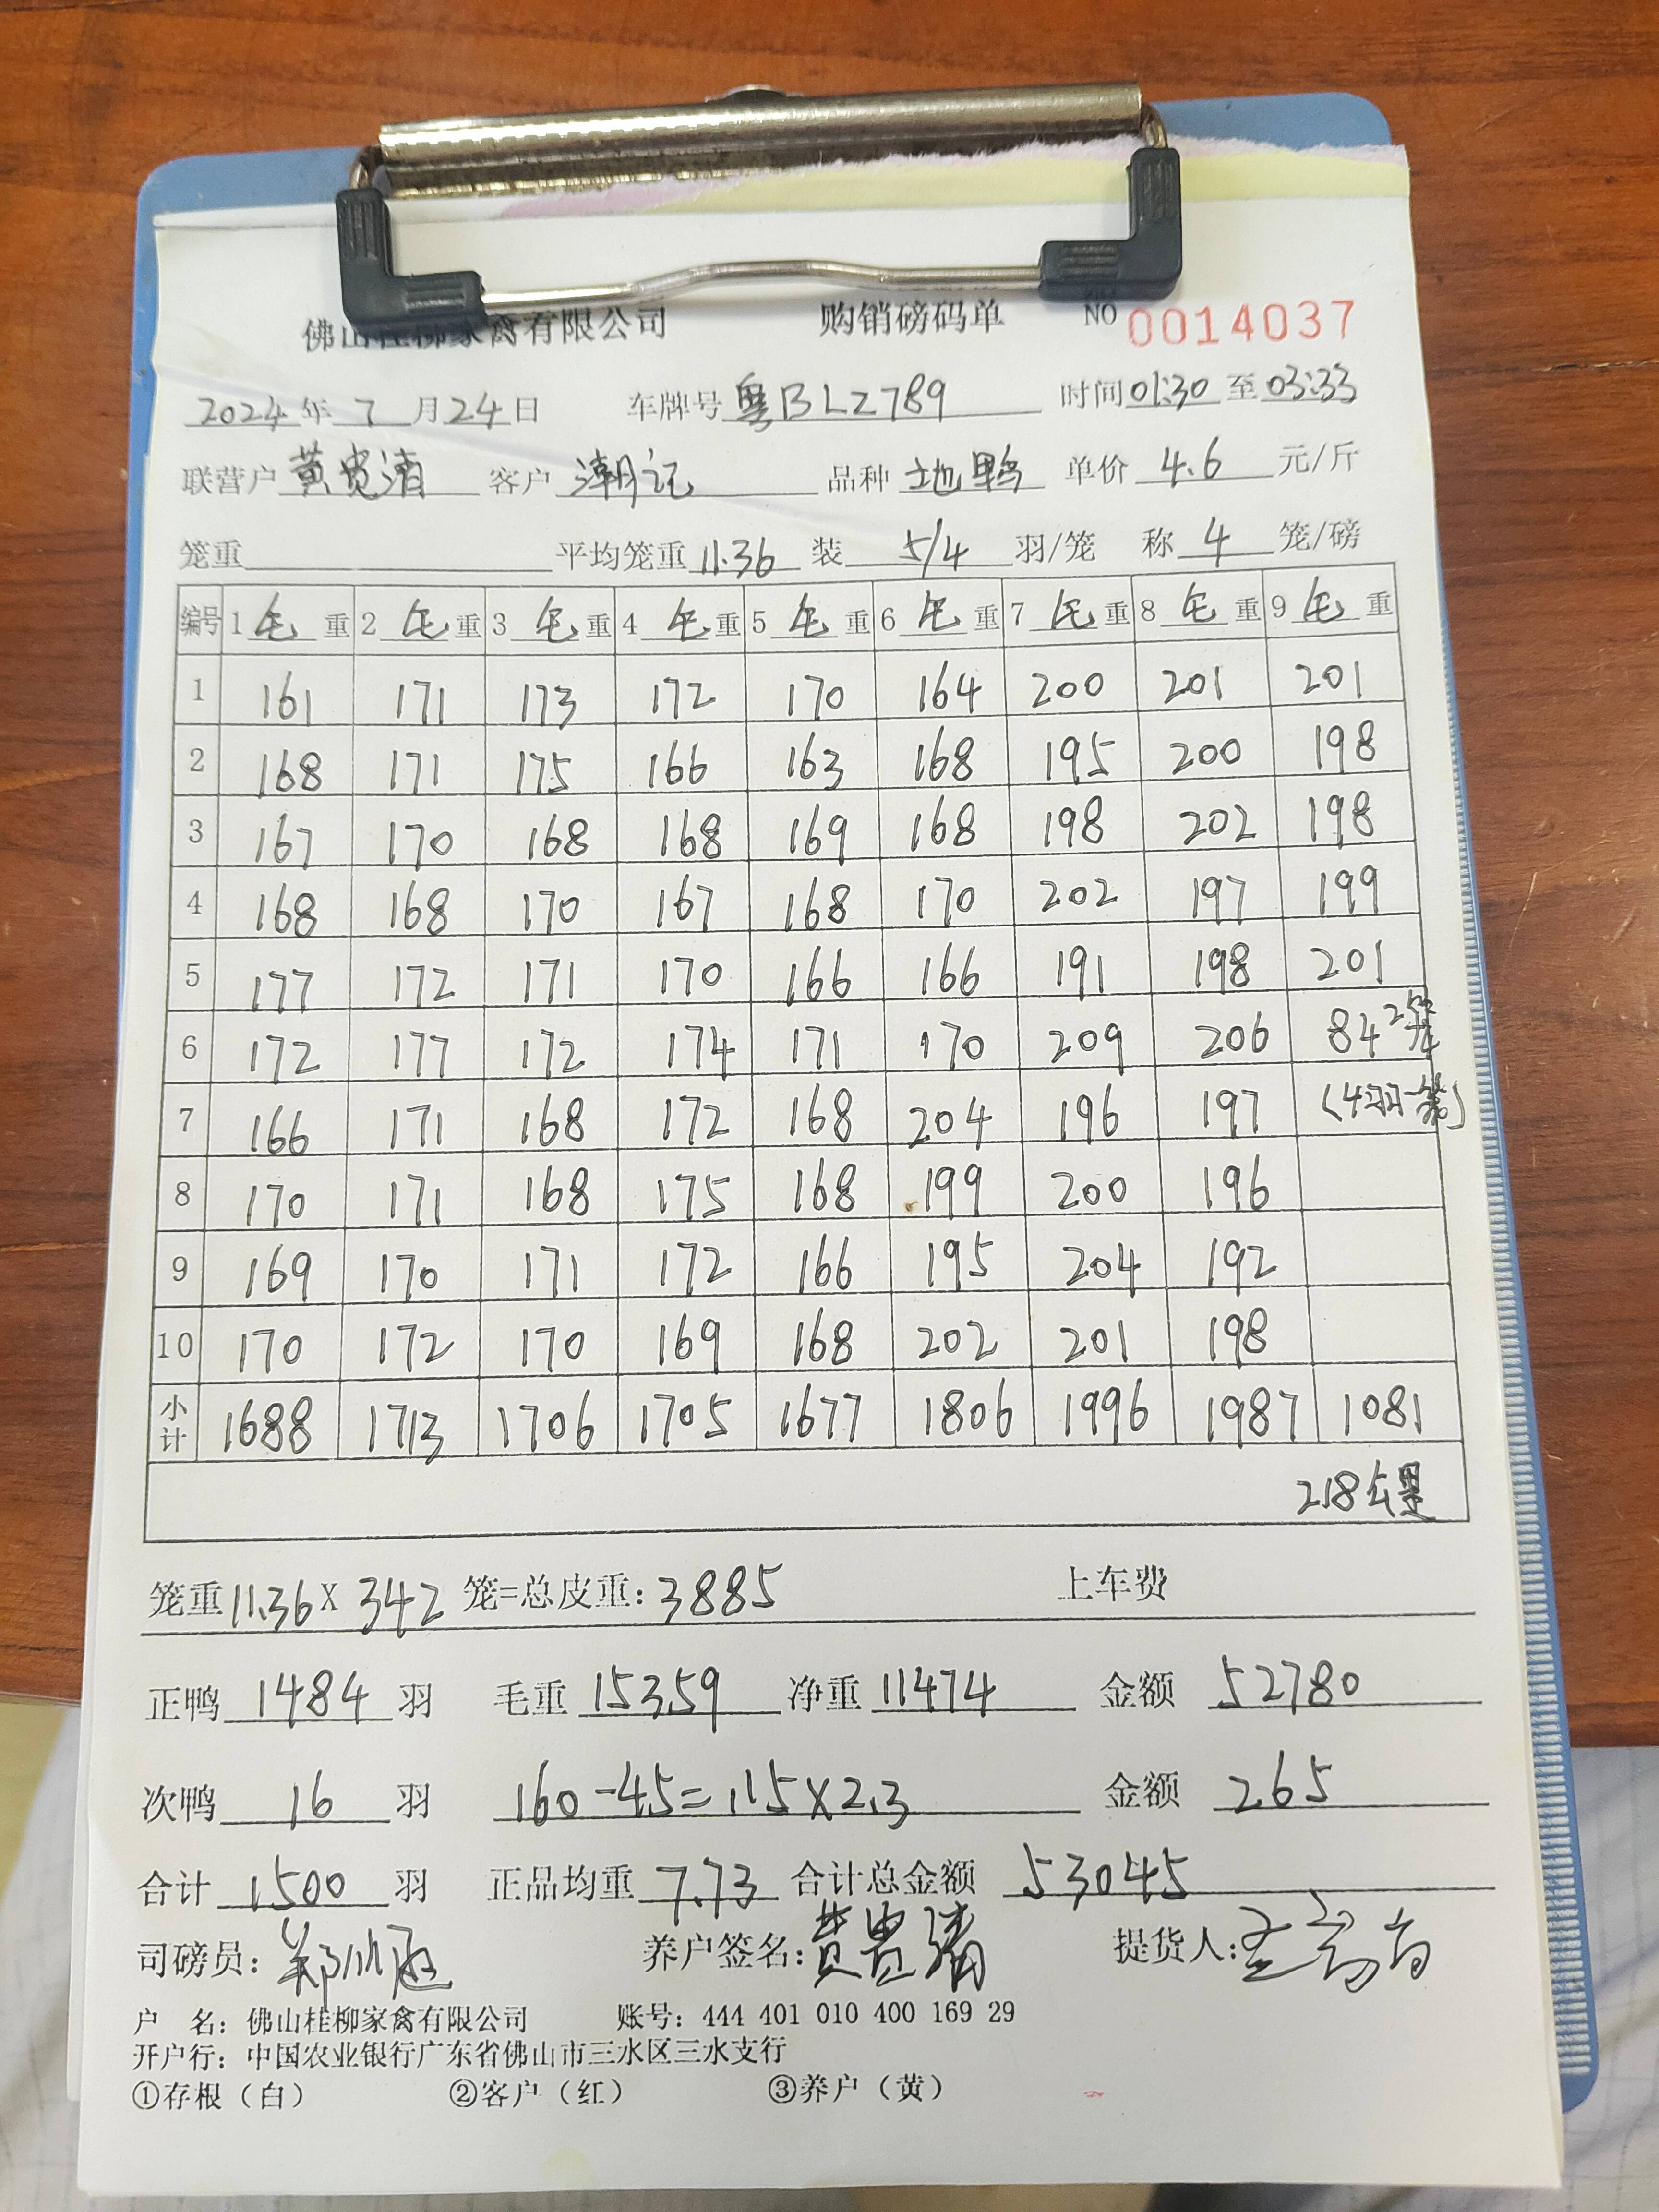 佛山桂柳家禽有限公司 购销磅码单 NO 0014037
2024 年 7 月 24 日 车牌号 粤BLZ789 时间 01:30 至 03:33
联营户 黄贵清 客户 潮记 品种 地鸭 单价 4.6 元/斤
笼重 平均笼重 11.36 装 5/4 羽/笼 称 4 笼/磅
编号 1 毛 重 2 毛 重 3 毛 重 4 毛 重 5 毛 重 6 毛 重 7 毛 重 8 毛 重 9 毛 重
1 161 171 173 172 170 164 200 201 201
2 168 171 175 166 163 168 195 200 198
3 167 170 168 168 169 168 198 202 198
4 168 168 170 167 168 170 202 197 199
5 177 172 171 170 166 166 191 198 201
6 172 177 172 174 171 170 209 206 84 2笼
7 166 171 168 172 168 204 196 197 (4羽一笼)
8 170 171 168 175 168 199 200 196
9 169 170 171 172 166 195 204 192
10 170 172 170 169 168 202 201 198
小计 1688 1713 1706 1705 1677 1806 1996 1987 1081
218公里
笼重 11.36 X 342 笼=总皮重: 3885 上车费
正鸭 1484 羽 毛重 15359 净重 11474 金额 52780
次鸭 16 羽 160-45=115X2.3 金额 265
合计 1500 羽 正品均重 7.73 合计总金额 53045
司磅员: 养户签名: 黄贵清 提货人:
户 名: 佛山桂柳家禽有限公司 账号: 444 401 010 400 169 29
开户行: 中国农业银行广东省佛山市三水区三水支行
①存根（白） ②客户（红） ③养户（黄）